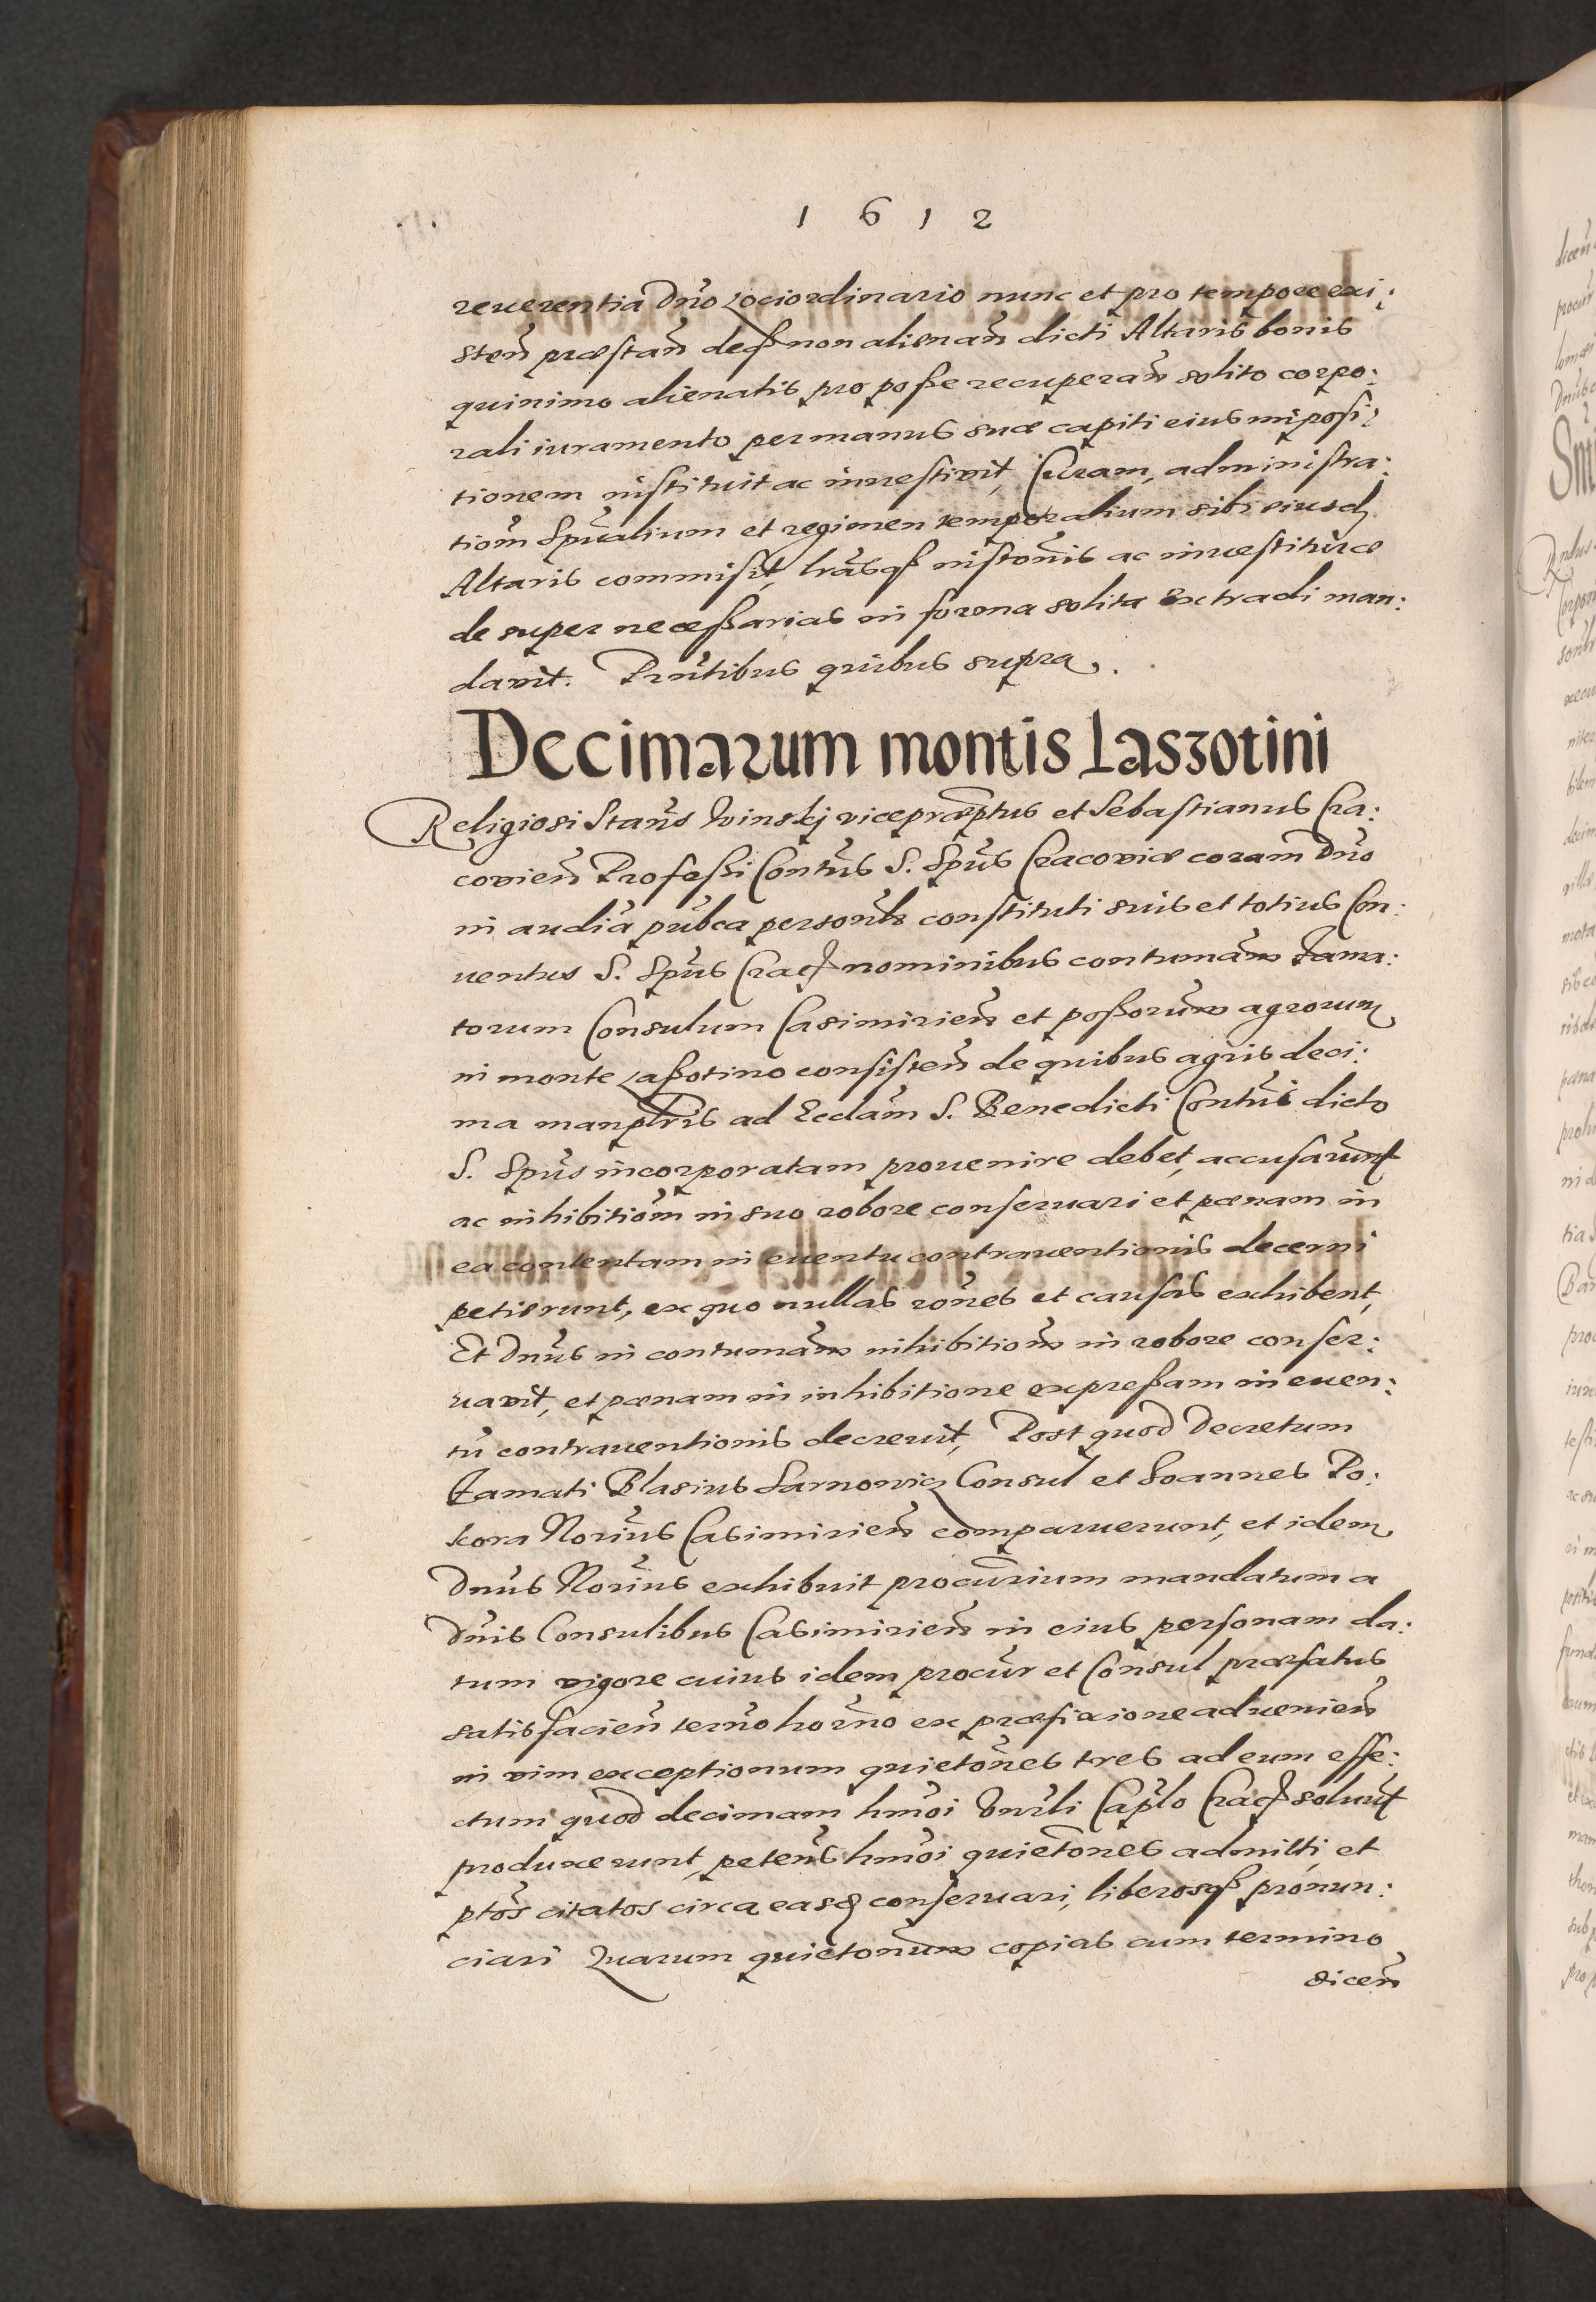 1612
reuerentia Dño Lociordinario nunc et pro tempore exi:
steñ præstañ deqȝ non alienañ dicti Altaris bonis
quinimo alienatis pro posse recuperañ solito corpo:
rali iuramento per manus suæ capiti eius imposi:
tionem instituit ac inuestivit, Curam, administra:
tiom̃ Spũalium et regimen temporalium sibi eiusd
Altaris commisit, lrãsqȝ instõnis ac inuestituræ
de super necessarias in forma solita extradi man:
davit. Prñtibus quibus supra.
Decimarum montis Laszotini
Religiosi Stañs Winskj vicepræptus et Sebastianus Cra:
covień Professi Contũs S. Spũs Cracoviæ coram Dño
in audia pubca personlr constituti suis et totius Con:
uentus S. Spũs Crac nominibus contumãm Fama:
torum Consulum Casimirień et possorum agrorum
in monte Lassotino consisteñ de quibus agris deci:
ma manplris ad Ecclam S. Benedicti Contũi dicto
S. Spũs incorporatam prouenire debet, accusarunt
ac inhibitiom̃ in suo robore conseruari et pœnam in
ea contentam in euentu contrauentionis decerni
petierunt, ex quo nullas rones et causas exhibent,
Et Dnũs in contumãm inhibitiom̃ in robore conser:
uavit, et pœnam in inhibitione expressam in euen:
tu contrauentionis decreuit, Post quod Decretum
Famati Blasius Sarnowicz Consul et Joannes Po:
kora Norius Casimirień comparuerunt, et idem
Dnũs Norius exhibuit procurium mandatum a
Dnis Consulibus Casimirień in eius personam da:
tum vigore cuius idem procur et Consul præfatus
satisfacień termo horno ex præfixione aduenień
in vim exceptionum quietones tres ad eum effe:
ctum quod decimam hmoi Vnrli Caplo Crac soluut
produxerunt, petens hmoi quietones admitti et
ptos citatos circa easd conseruari, liberosqȝ pronun:
ciari Quarum quietonum copias cum termino
diceñ